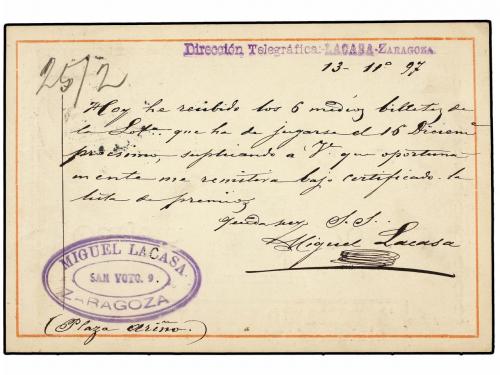 Dirección Telegráfica: LACASA-ZARAGOZA.
25/2
13-11º 97
Hoy he recibido los 6 medios billetes de
la Lotª. que ha de jugarse el 16 Diciem
proximo, suplicando a V. que oportuna
mente me remitera bajo certificado la
lista de premios
queda suyo S. S.
Miguel Lacasa
MIGUEL LACASA
SAN VOTO. 9.
ZARAGOZA
(Plaza Ariño.)